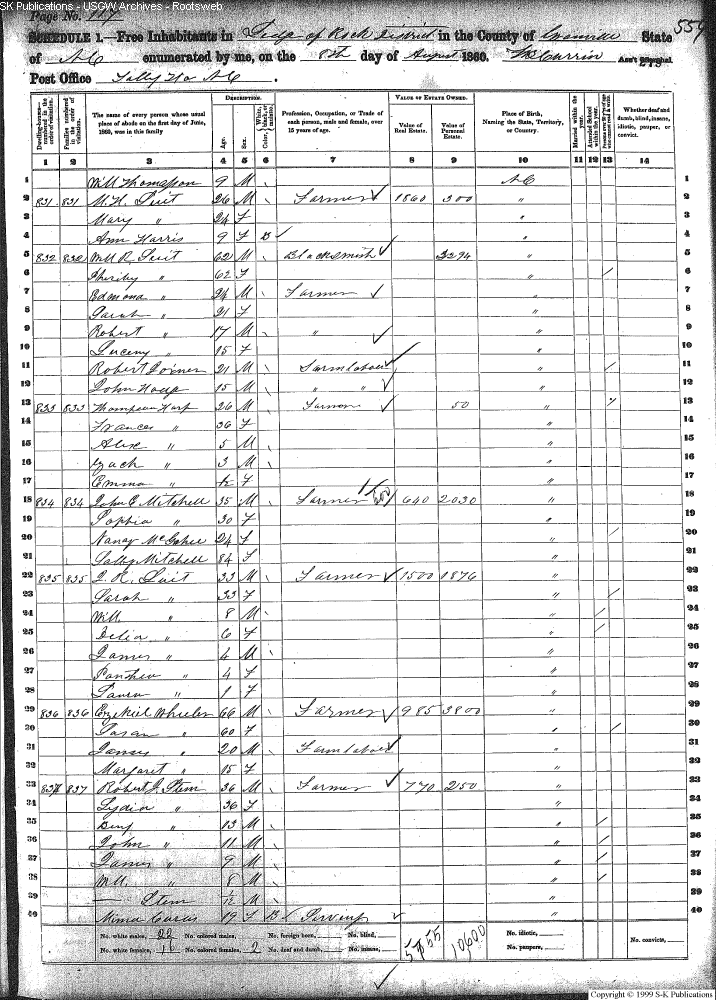 S-K Publications - USGW Archives - Rootsweb
Page No. 117
559
SCHEDULE 1.—Free Inhabitants in Ledge of Rock District in the County of Granville State
of NC enumerated by me, on the 8th day of August 1860. Ass't Marshal
Post Office Tally Ho NC.
Dwelling-houses— numbered in the order of visitation.
Families numbered in the order of visitation.
The name of every person whose usual place of abode on the first day of June, 1860, was in this family
DESCRIPTION.
Age. Sex. Color, White, black, or mulatto.
Profession, Occupation, or Trade of each person, male and female, over 15 years of age.
VALUE OF ESTATE OWNED.
Value of Real Estate. Value of Personal Estate.
Place of Birth, Naming the State, Territory, or Country.
Married within the year.
Attended School within the year.
Whether deaf and dumb, blind, insane, idiotic, pauper, or convict.
1 2 3 4 5 6 7 8 9 10 11 12 13 14
1 Will Thomasson 9 M NC 1
2 831 831 M. H. Suit 26 M Farmer 1860 300 " 2
3 Mary " 24 F " 3
4 Ann Harris 9 F B " 4
5 832 832 Will R. Suit 62 M Blacksmith 3294 " 5
6 " 62 F " / 6
7 Edmond " 24 M Farmer " 7
8 Sarah " 21 F " 8
9 Robert " 17 M " " 9
10 " 15 F " 10
11 Robert Joiner 21 M Farm laborer " / 11
12 John 15 M " " " 12
13 833 833 Thompson Harp 26 M Farmer 50 " 13
14 Frances " 36 F " 14
15 " 5 M " 15
16 Zach " 3 M " 16
17 Emma " F " 17
18 834 834 John C. Mitchell 35 M Farmer 640 2030 " 18
19 Sophia " 30 F " 19
20 Nancy McGehee 24 F " / 20
21 Sally Mitchell 84 F " 21
22 835 835 J. R. Suit 33 M Farmer 1500 1876 " 22
23 Sarah " 33 F " / 23
24 Will. " 8 M " / 24
25 Delia " 6 F " / 25
26 James " 4 M " 26
27 " 4 F " 27
28 Laura " 1 F " 28
29 836 836 Ezekiel Wheeler 66 M Farmer 985 3800 " 29
30 Susan " 60 F " / 30
31 James " 20 M Farm laborer " 31
32 Margaret " 15 F " 32
33 837 837 Robert J. Stem 36 M Farmer 770 250 " 33
34 Lydia " 36 F " 34
35 Benj " 13 M " / 35
36 John " 11 M " / 36
37 James " 9 M " / 37
38 " 8 M " / 38
39 — Stem 1/12 M " 39
40 19 F B " 40
No. white males, 22 No. colored males, No. foreign born, No. blind, 5755 10600 No. idiotic,
No. white females, 16 No. colored females, 2 No. deaf and dumb, No. insane, No. paupers, No. convicts,
Copyright © 1999 S-K Publications